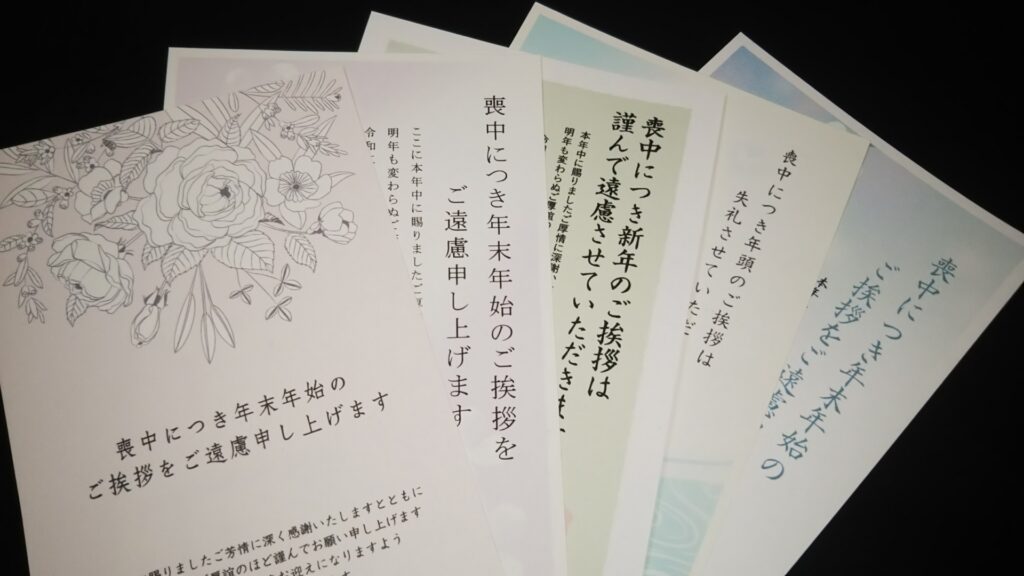 喪中につき年末年始の
ご挨拶をご遠慮申し上げます
賜りましたご芳情に深く感謝いたしますとともに
厚誼のほど謹んでお願い申し上げます
お迎えになりますよう
喪中につき年末年始のご挨拶を
ご遠慮申し上げます
ここに本年中に賜りましたご
明年も変わらぬご
令和
喪中につき新年のご挨拶は
謹んで遠慮させていただきま
本年中に賜りましたご厚情に深謝い
明年も変わらぬご厚誼の
喪中につき年頭のご挨拶は
失礼させていただ
喪中につき年末年始の
ご挨拶をご遠慮
本年